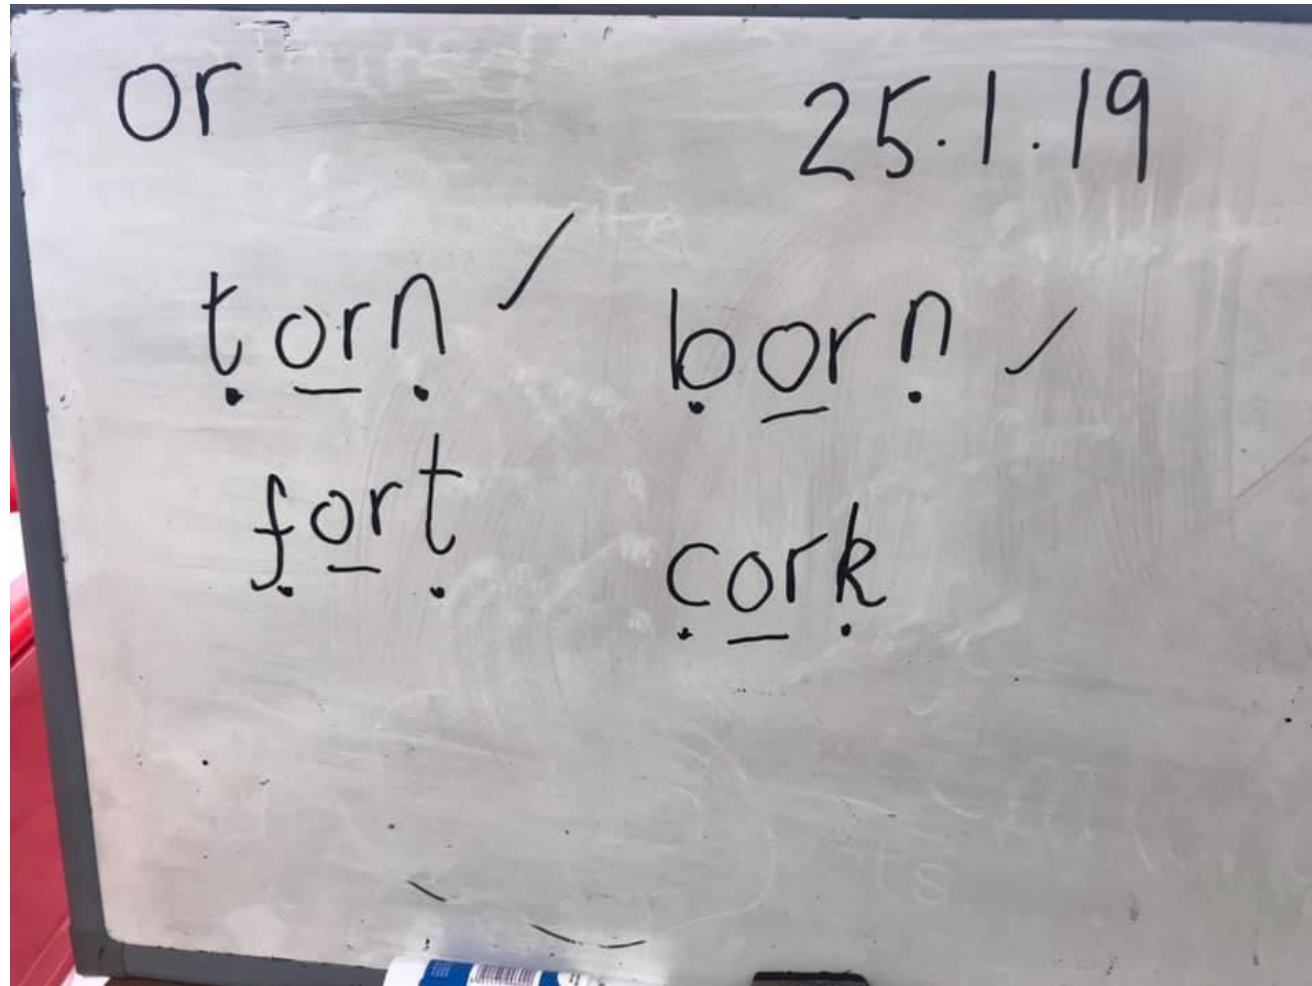 or 25.1.19
torn ✓ born ✓
fort cork